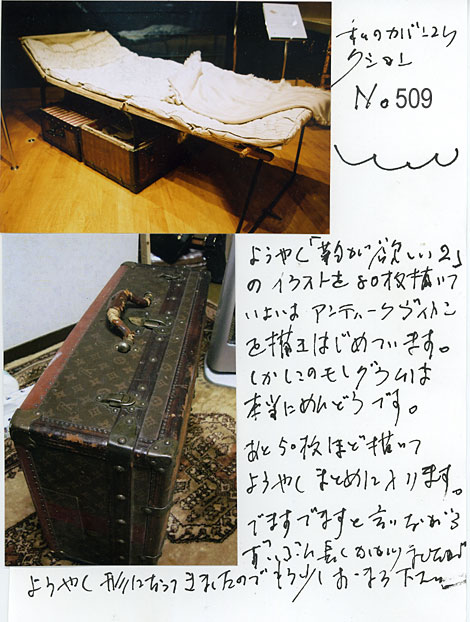 私のカバンコレ
クション
No 509
ようやく「鞄が欲しい2」
のイラストを80枚描いて
いよいよアンティークヴィトン
を描きはじめています。
しかしこのモノグラムは
本当にめんどうです。
あと50枚ほど描いて
ようやくまとめに入ります。
でますでますと言いながら
ずいぶん長くかかり
ようやく形になってきましたのでもう少しおまち下さい